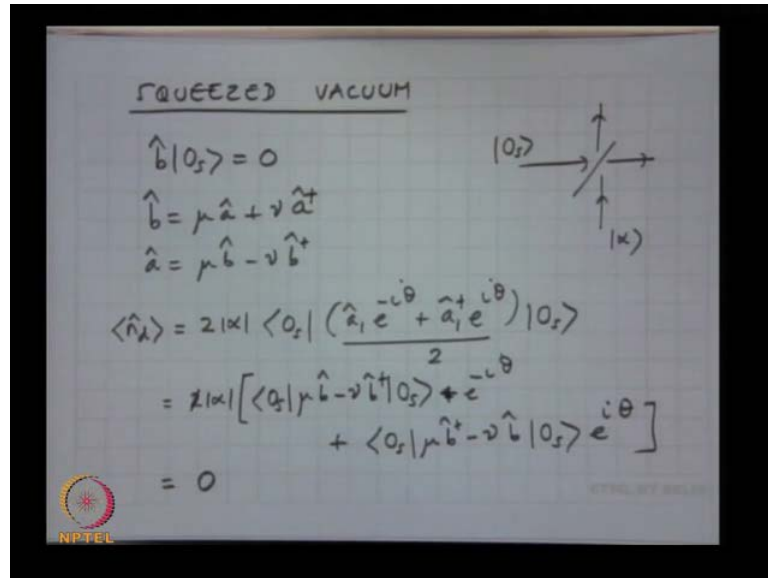 SQUEEZED VACUUM
b̂|0ₛ⟩ = 0
|0ₛ⟩
b̂ = μâ + νâ†
|α⟩
â = μb̂ - νb̂†
⟨n̂_d⟩ = 2|α| ⟨0ₛ| (â₁e^{-iθ} + â₁†e^{iθ})/2 |0ₛ⟩
= 2|α| [⟨0ₛ|μb̂ - νb̂†|0ₛ⟩ e^{-iθ}
+ ⟨0ₛ|μb̂† - νb̂|0ₛ⟩ e^{iθ}]
= 0
NPTEL